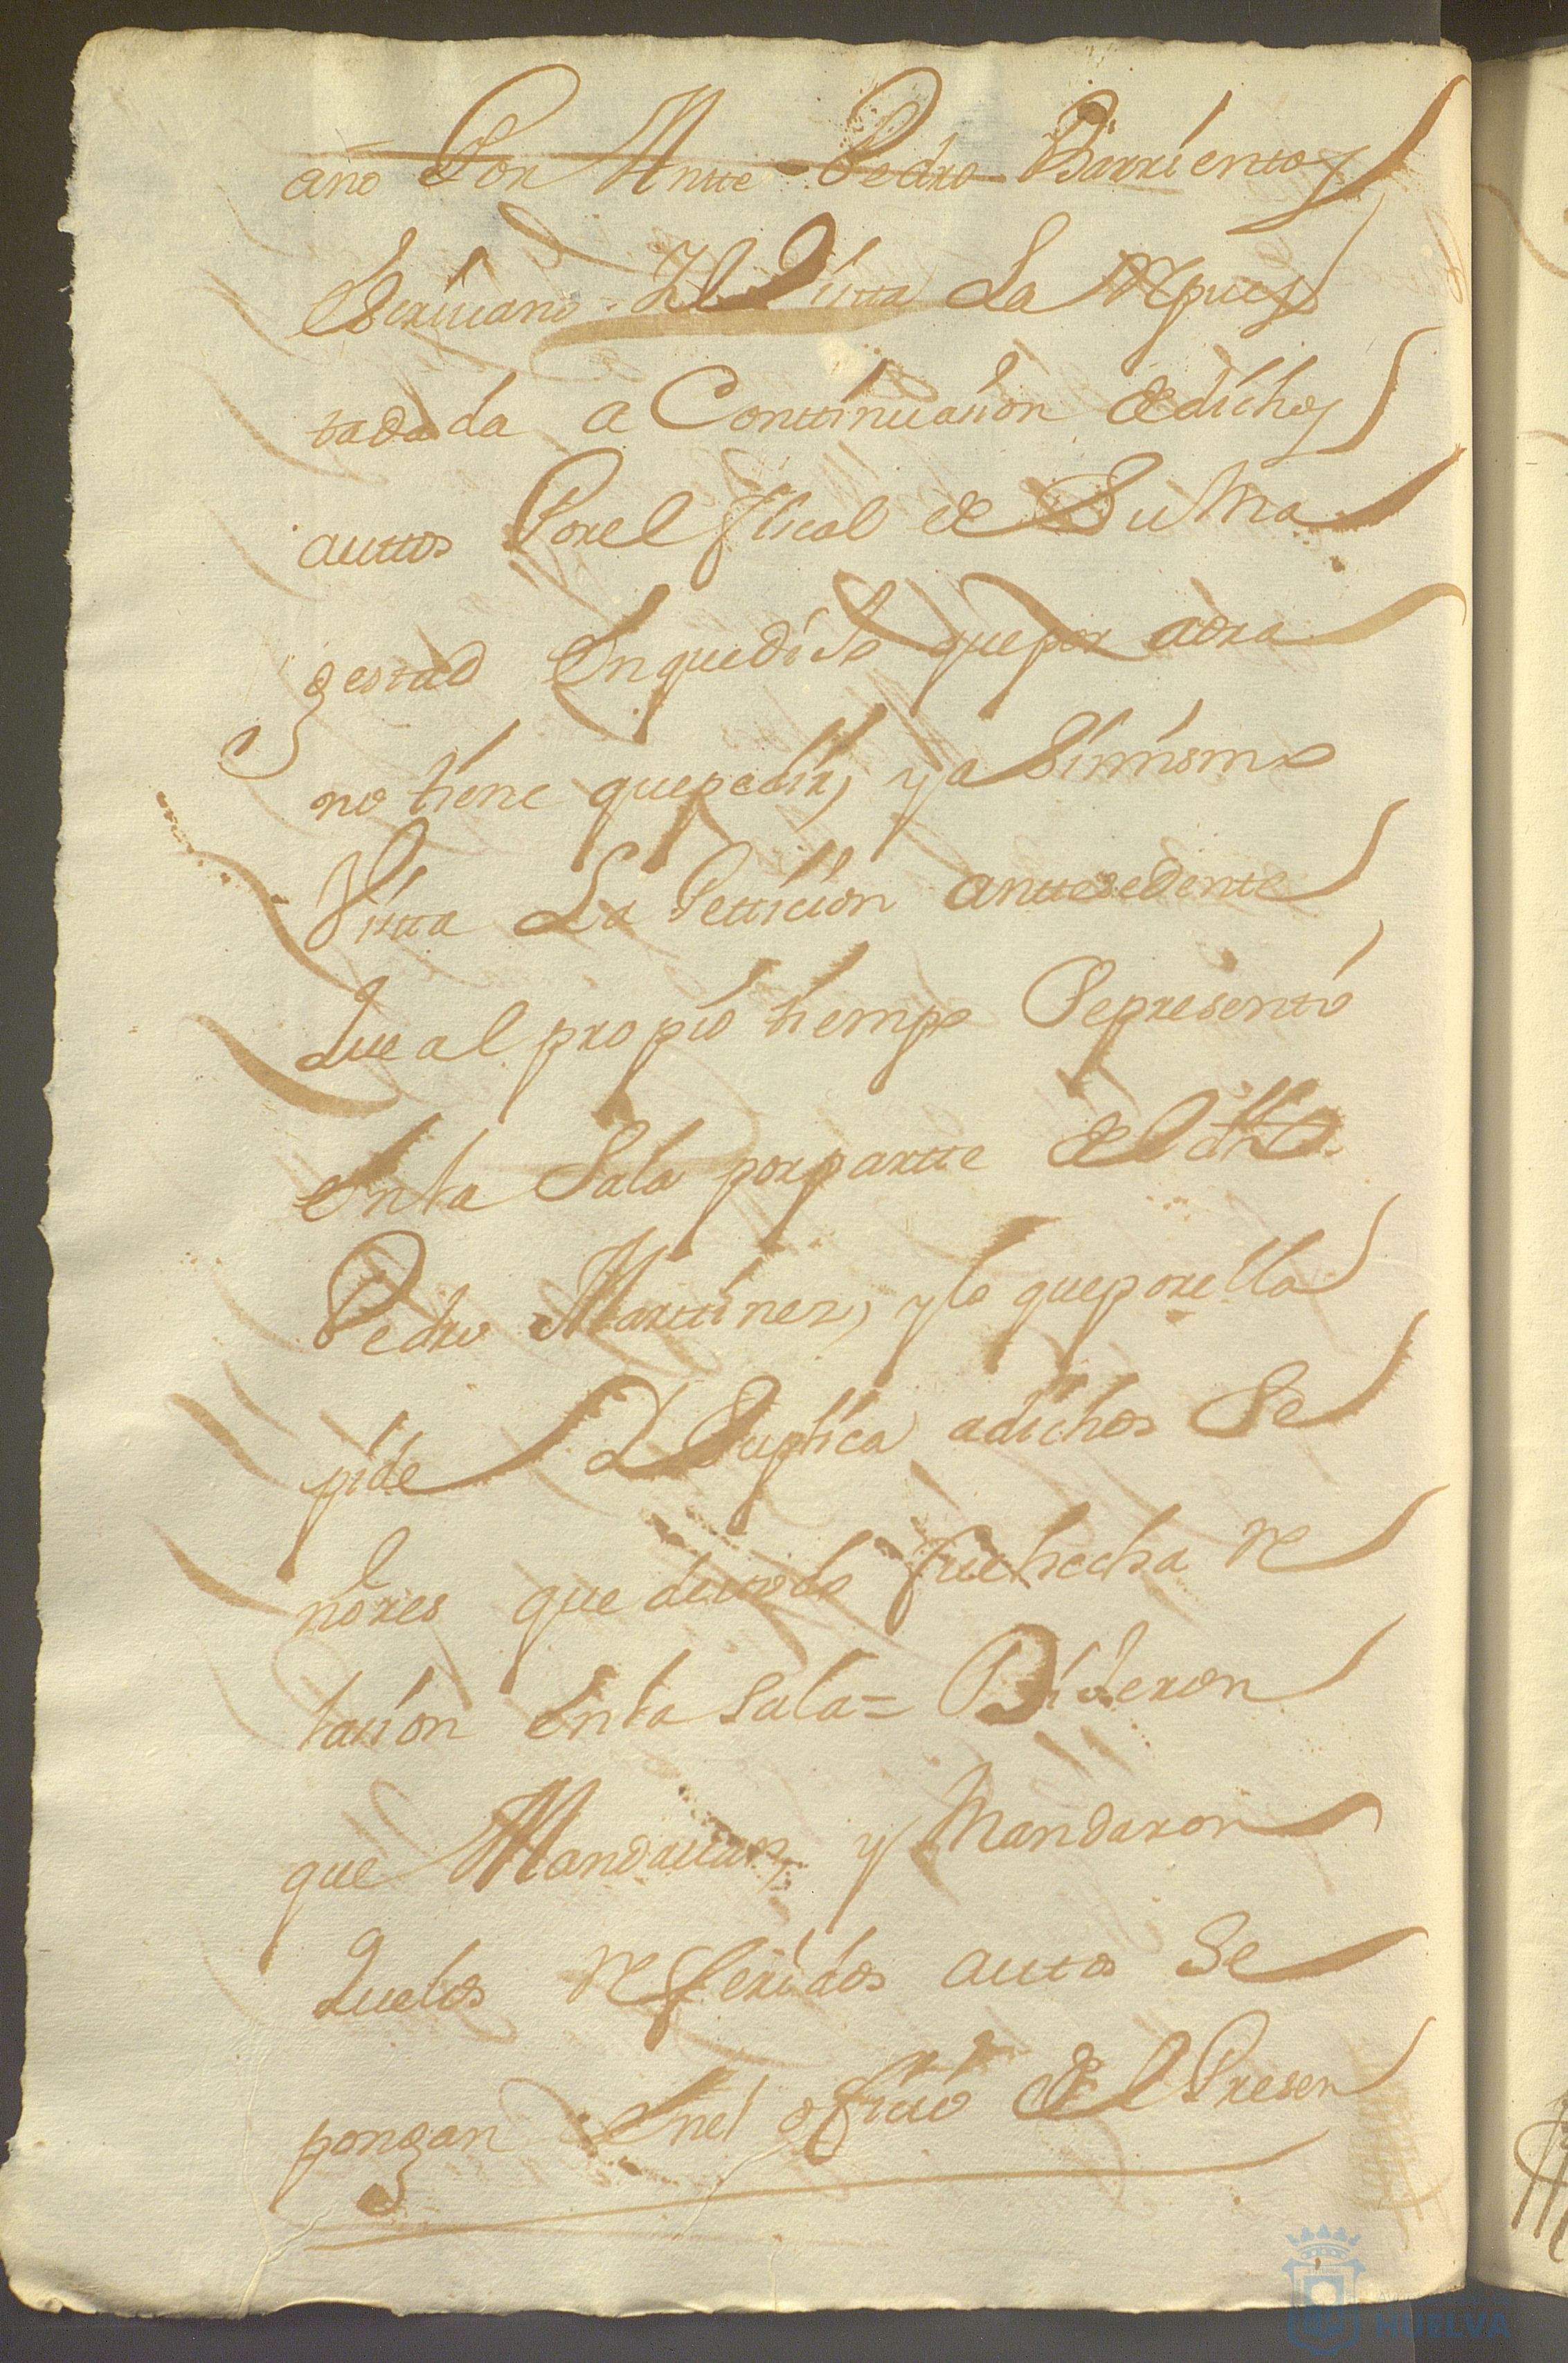 año Por Antte Pedro Barrientos
Escriuano. Y Vistta La Respues
tadada a Conttinuaçion dedichos
auttos Porel fiscal de Su Ma
gestad Enquediso quepor aora
no tiene quepedir, y a Simismo
Vistta La Petticion anttesedentte
Que al propio tiempo Sepresentó
Enla Sala porpartte del dho
Pedro Marttinez, y lo queporella
pide Y Suplica adichos Se
ñores que detodo fuehecha re
laçion Enla Sala = Dixeron
que Mandauan, y Mandaron
Quelos referidos auttos Se
pongan Enel ofiçio del Presen
HUELVA